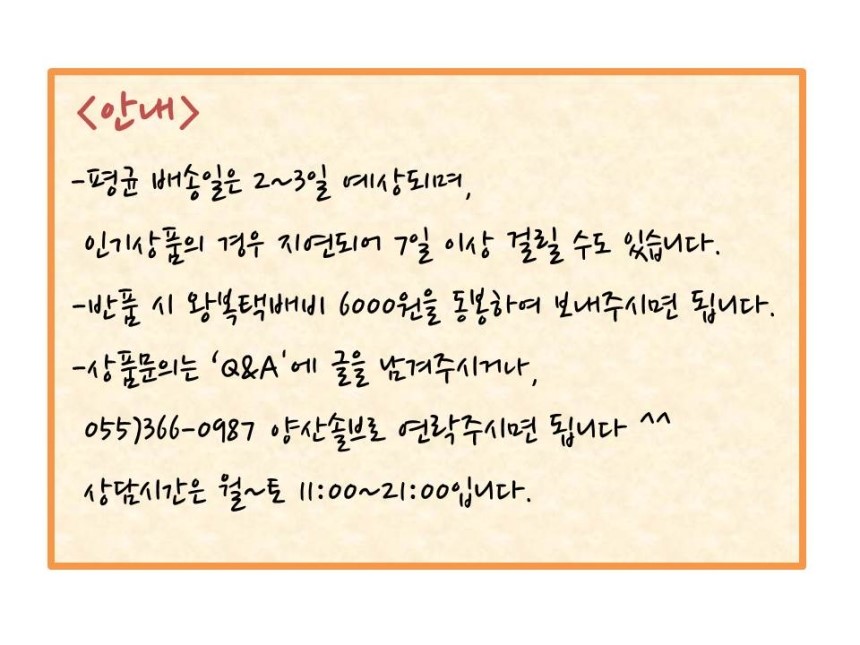 <안내>
-평균 배송일은 2~3일 예상되며,
인기상품의 경우 지연되어 7일 이상 걸릴 수도 있습니다.
-반품 시 왕복택배비 6000원을 동봉하여 보내주시면 됩니다.
-상품문의는 'Q&A'에 글을 남겨주시거나,
055)366-0987 양산솔브로 연락주시면 됩니다 ^^
상담시간은 월~토 11:00~21:00입니다.